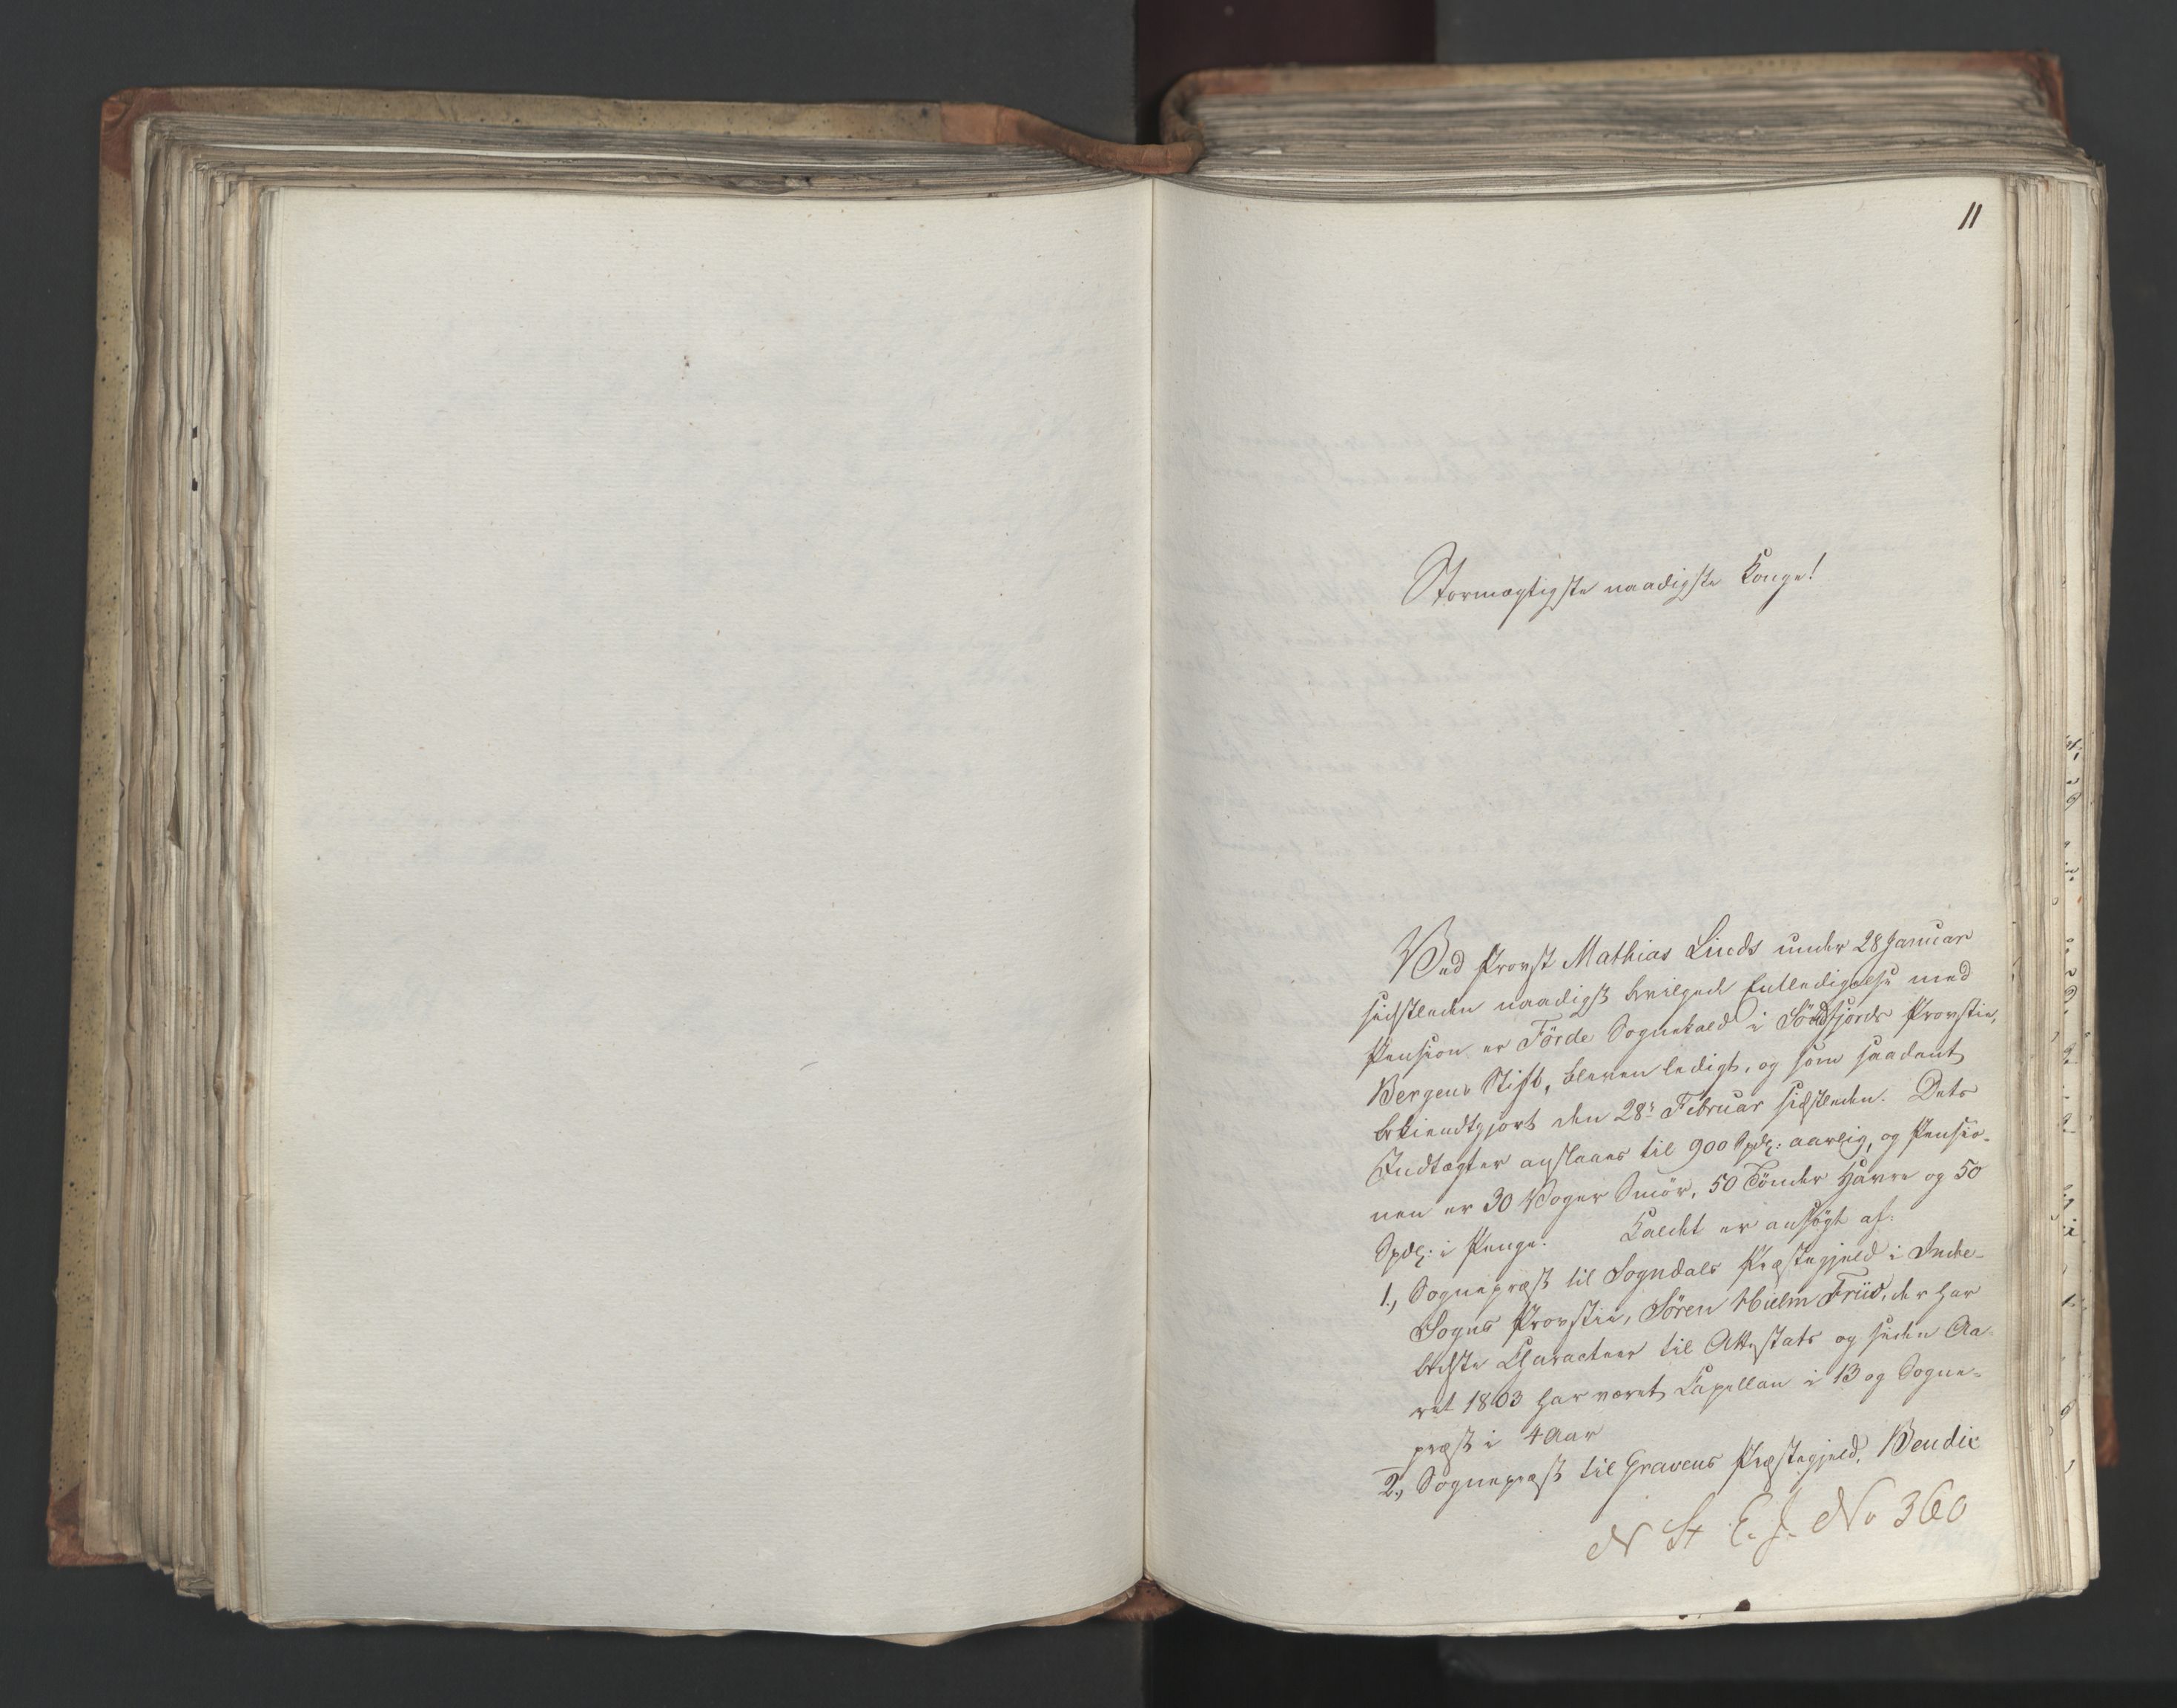 11
Stormægtigste naadigste Konge!
Ved Provst Mathias Linds under 28 Januar
sidstleden naadigst bevilgede Entledigelse med
Pension er Förde Sognekald i Söndfjords Provstie,
Bergens Stift, bleven ledigt, og som saadant
bekiendtgjort den 28de Februar sidstleden. Dets
Indtægter anslaaes til 900 Spdlr: aarlig, og Pensio-
nen er 30 Voger Smör, 50 Tönder Havre og 50
Spdlr: i Penge. Kaldet er ansögt af:
1., Sognepræst til Sogndals Præstegjeld i Indre-
Sogns Provstie, Sören Hielm Friis, der har
bedste Characteer til Attestats og siden Aa-
ret 1803 har været Capellan i 13 og Sogne-
præst i 4 Aar
2., Sognepræst til Gravens Præstegjeld, Bendix
N St E. J. No 360